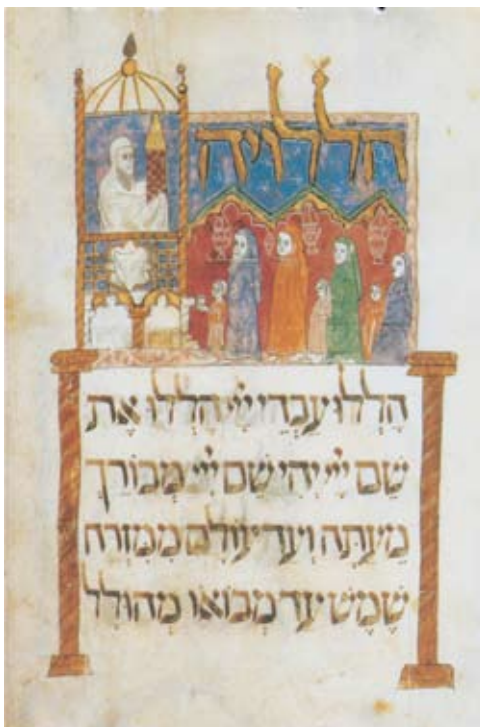 הללויה
הללו עבדי ייי הללו את
שם ייי יהי שם ייי מבורך
מעתה ועד עולם ממזרח
שמש עד מבואו מהולל